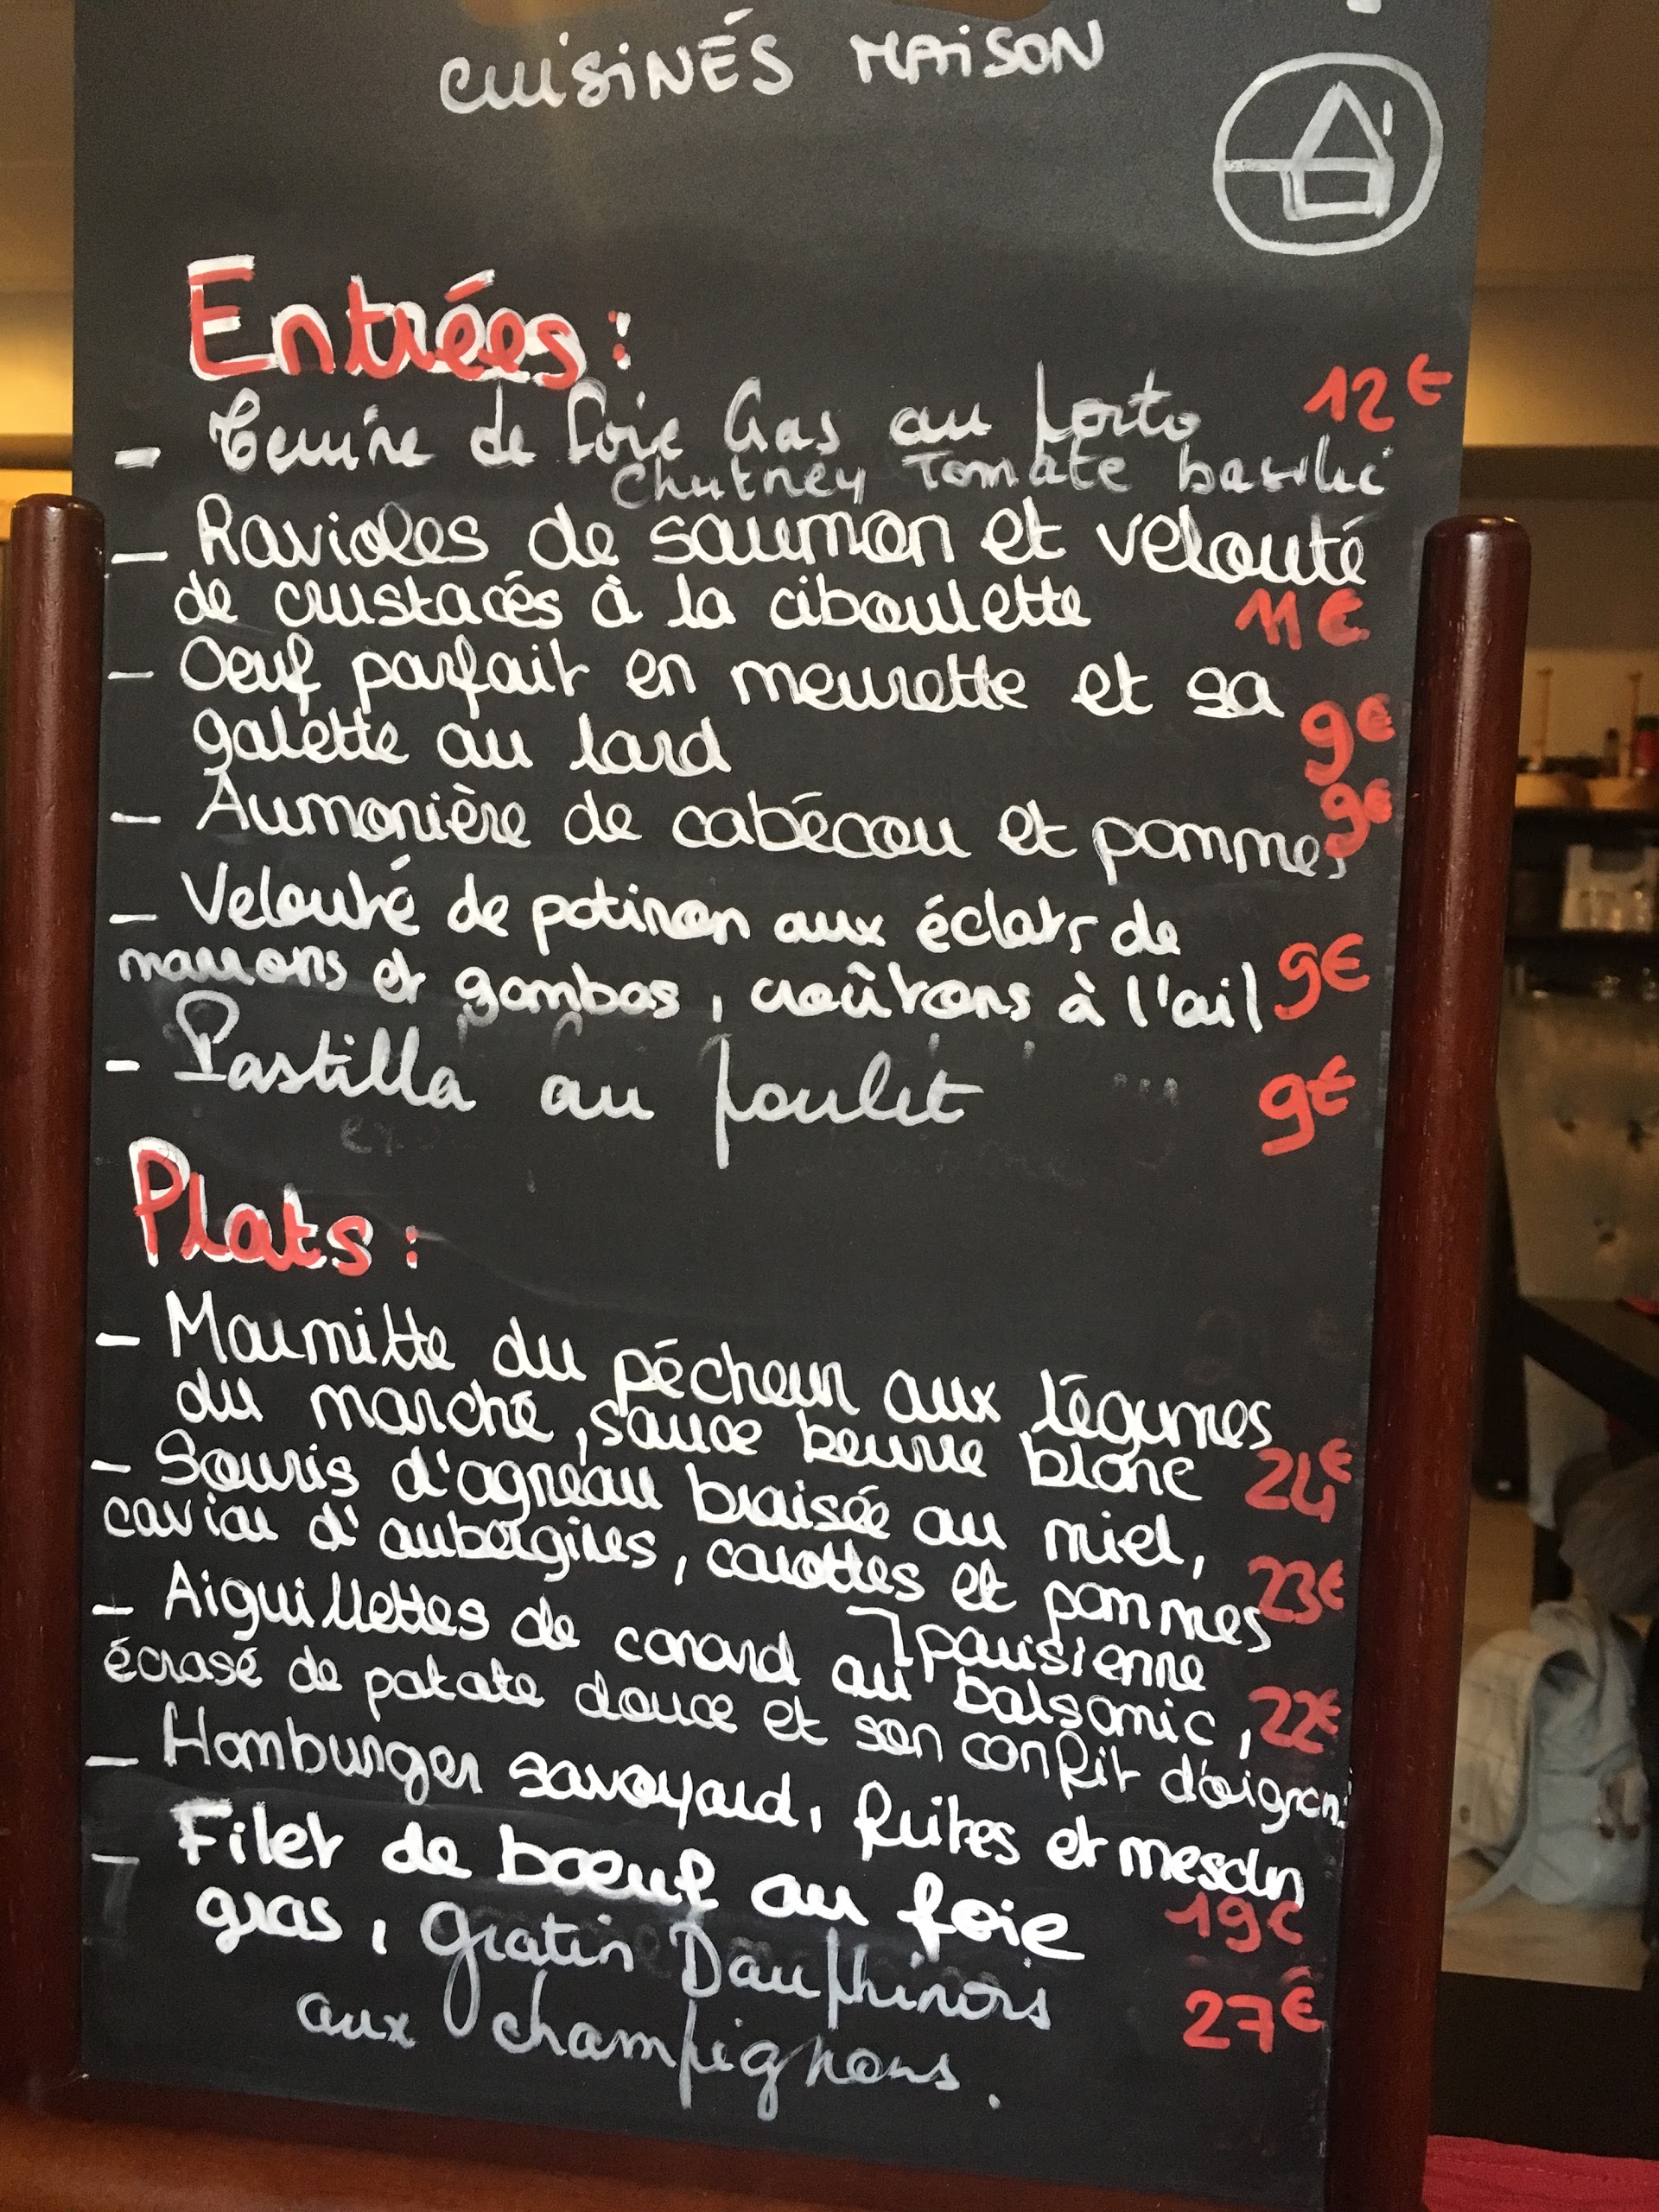 CUISINÉS MAISON
Entrées :
- Terrine de foie Gas au porto 12€
Chutney Tomate basilic
- Ravioles de saumon et velouté
de crustacés à la ciboulette 11€
- Oeuf parfait en meurette et sa
galette au lard 9€
- Aumonière de cabécou et pommes 9€
- Velouté de potiron aux éclats de
marrons et gambas, croûtons à l'ail 9€
- Pastilla au poulet 9€
Plats :
- Marmitte du pécheur aux légumes
du marché, sauce beurre blanc 24€
- Souris d'agneau braisée au miel,
caviar d'aubergines, carottes et pommes 23€
parisienne
- Aiguillettes de canard au balsamic, 22€
écrasé de patate douce et son confit d'oignons
- Hamburger savoyard, frites et mesclun
19€
- Filet de boeuf au foie
gras, gratin Dauphinois 27€
aux champignons.